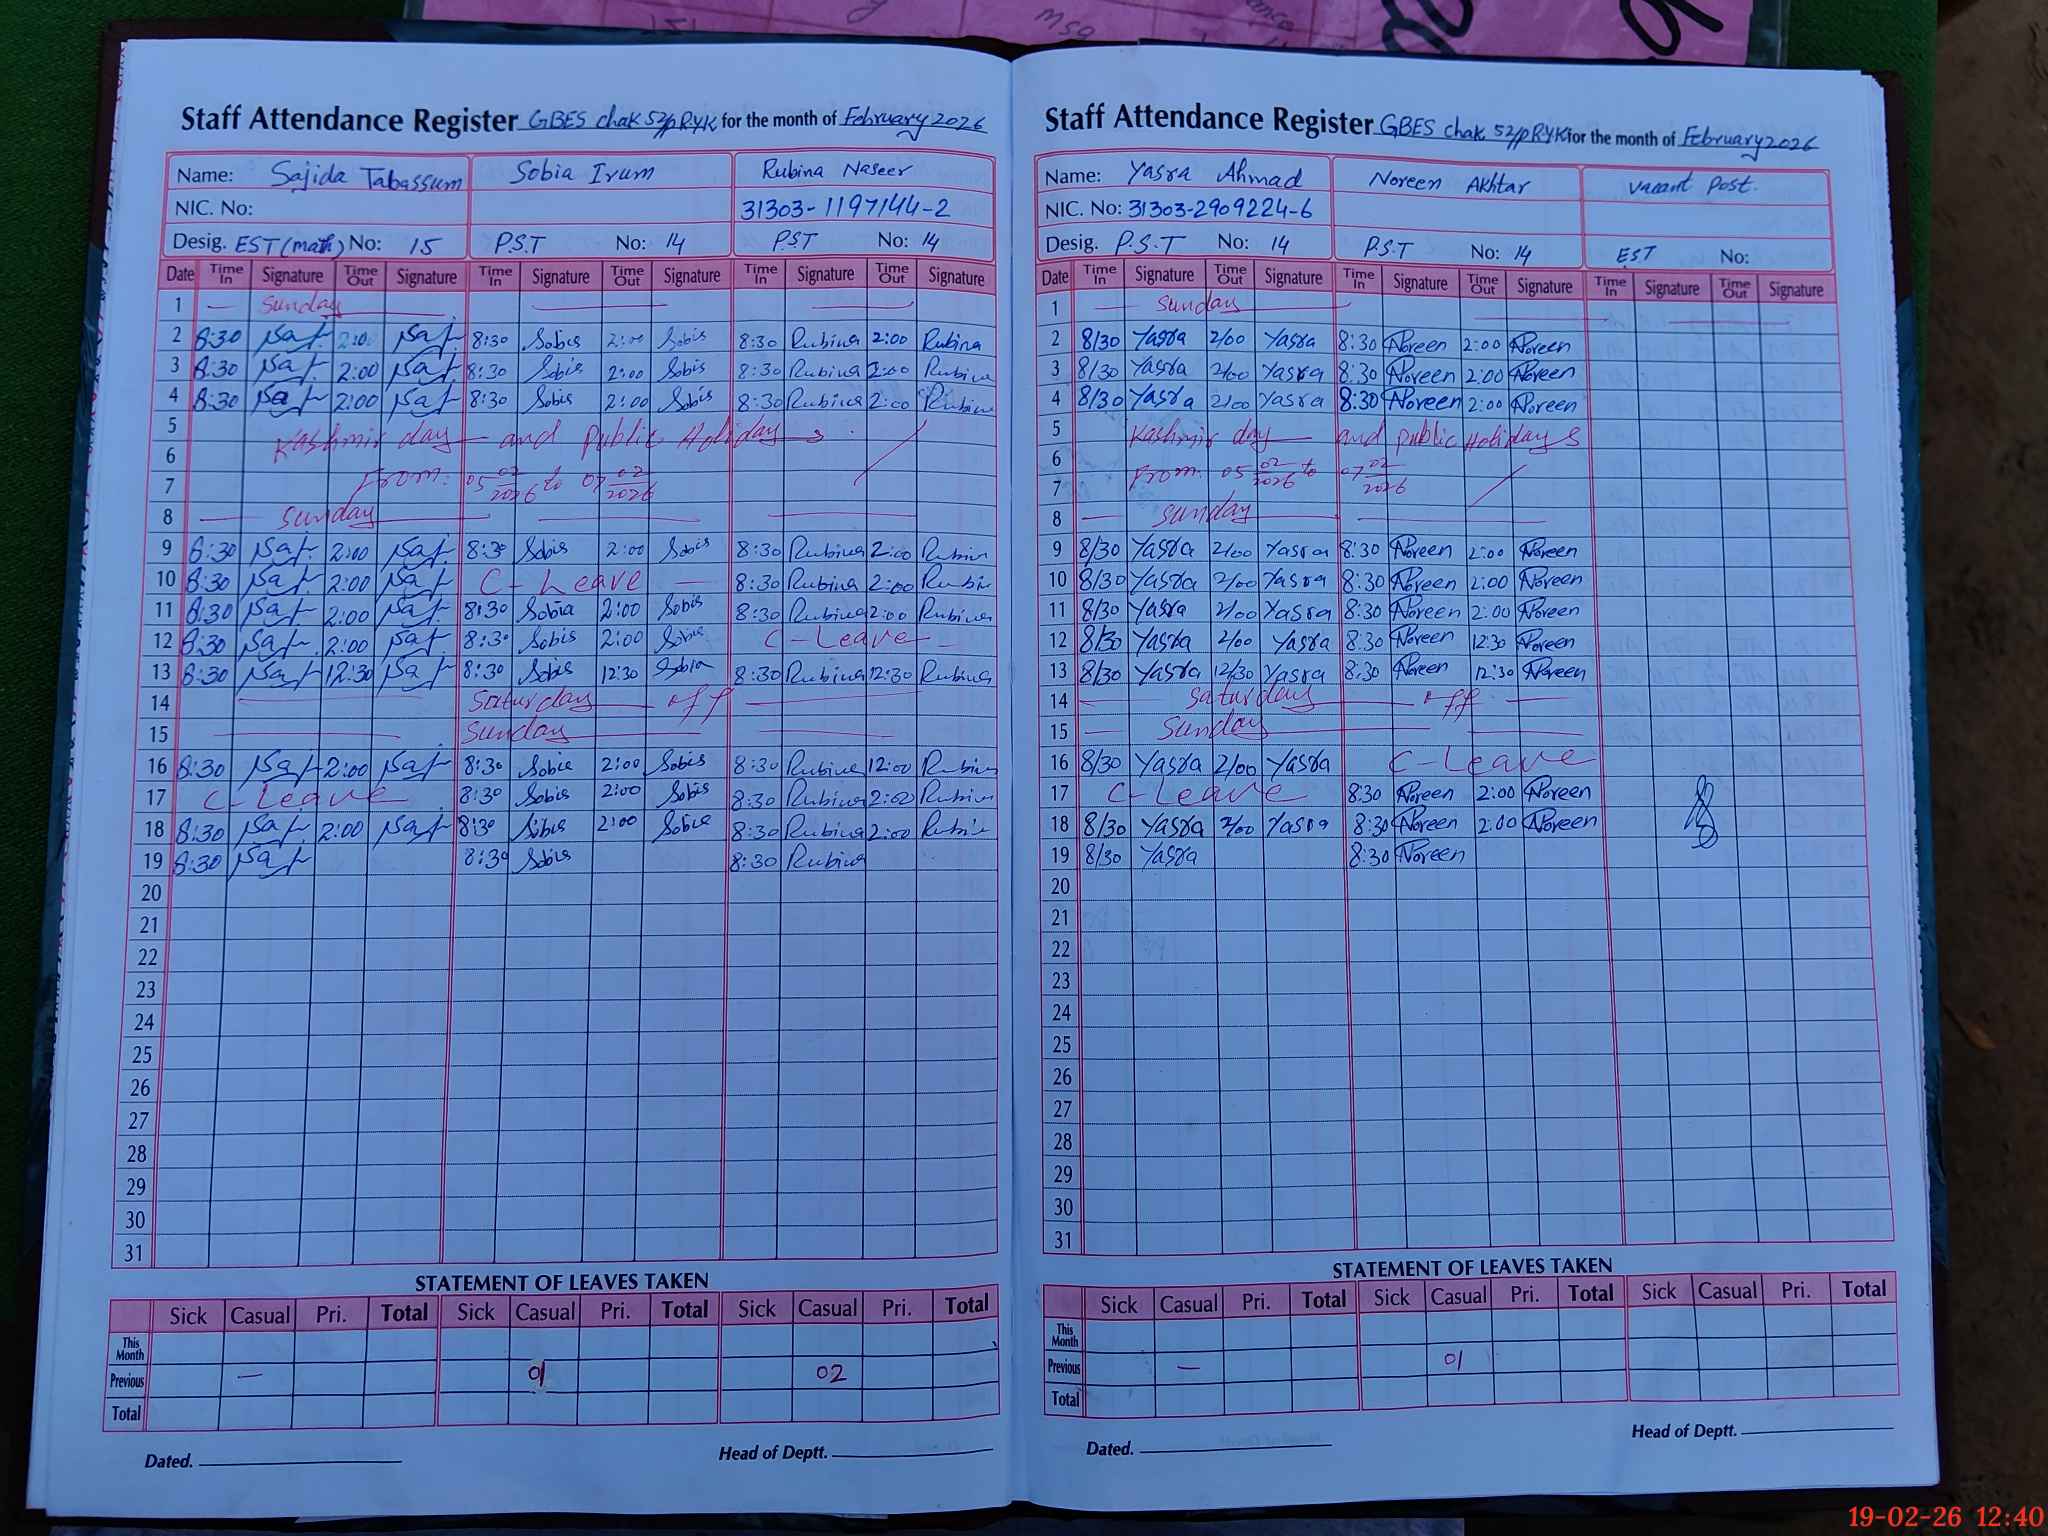 Staff Attendance Register GBES chak 52/p RYK for the month of February 2026
Name: Sajida Tabassum Sobia Irum Rubina Naseer
NIC. No: 31303-1197144-2
Desig. EST (math) No: 15 P.S.T No: 14 P.S.T No: 14
Date Time In Signature Time Out Signature Time In Signature Time Out Signature Time In Signature Time Out Signature
1 — Sunday
2 8:30 2:00 8:30 Sobia 2:00 Sobia 8:30 Rubina 2:00 Rubina
3 8:30 2:00 8:30 Sobia 2:00 Sobia 8:30 Rubina 2:00 Rubina
4 8:30 2:00 8:30 Sobia 2:00 Sobia 8:30 Rubina 2:00 Rubina
5 Kashmir day — and Public Holidays
6
7 From: 05 02/2026 to 07 02/2026
8 — Sunday
9 8:30 2:00 8:30 Sobia 2:00 Sobia 8:30 Rubina 2:00 Rubina
10 8:30 2:00 C-Leave — 8:30 Rubina 2:00 Rubina
11 8:30 2:00 8:30 Sobia 2:00 Sobia 8:30 Rubina 2:00 Rubina
12 8:30 2:00 8:30 Sobia 2:00 Sobia C-Leave —
13 8:30 12:30 8:30 Sobia 12:30 Sobia 8:30 Rubina 12:30 Rubina
14 Saturday — off —
15 Sunday
16 8:30 2:00 8:30 Sobia 2:00 Sobia 8:30 Rubina 12:00 Rubina
17 C-Leave 8:30 Sobia 2:00 Sobia 8:30 Rubina 2:00 Rubina
18 8:30 2:00 8:30 Sobia 2:00 Sobia 8:30 Rubina 2:00 Rubina
19 8:30 8:30 Sobia 8:30 Rubina
20
21
22
23
24
25
26
27
28
29
30
31
STATEMENT OF LEAVES TAKEN
Sick Casual Pri. Total Sick Casual Pri. Total Sick Casual Pri. Total
This Month
Previous — 01 02
Total
Dated. Head of Deptt.
Staff Attendance Register GBES chak 52/p RYK for the month of February 2026
Name: Yasra Ahmad Noreen Akhtar vacant Post.
NIC. No: 31303-2909224-6
Desig. P.S.T No: 14 P.S.T No: 14 EST No:
Date Time In Signature Time Out Signature Time In Signature Time Out Signature Time In Signature Time Out Signature
1 — Sunday
2 8/30 Yasra 2/00 Yasra 8:30 Noreen 2:00 Noreen
3 8/30 Yasra 2/00 Yasra 8:30 Noreen 2:00 Noreen
4 8/30 Yasra 2/00 Yasra 8:30 Noreen 2:00 Noreen
5 Kashmir day — and public Holidays
6
7 From: 05 02/2026 to 07 02/2026
8 — Sunday
9 8/30 Yasra 2/00 Yasra 8:30 Noreen 2:00 Noreen
10 8/30 Yasra 2/00 Yasra 8:30 Noreen 2:00 Noreen
11 8/30 Yasra 2/00 Yasra 8:30 Noreen 2:00 Noreen
12 8/30 Yasra 2/00 Yasra 8:30 Noreen 12:30 Noreen
13 8/30 Yasra 12/30 Yasra 8:30 Noreen 12:30 Noreen
14 — Saturday — off —
15 — Sunday
16 8/30 Yasra 2/00 Yasra C-Leave
17 C-Leave 8:30 Noreen 2:00 Noreen
18 8/30 Yasra 2/00 Yasra 8:30 Noreen 2:00 Noreen
19 8/30 Yasra 8:30 Noreen
20
21
22
23
24
25
26
27
28
29
30
31
STATEMENT OF LEAVES TAKEN
Sick Casual Pri. Total Sick Casual Pri. Total Sick Casual Pri. Total
This Month
Previous — 01
Total
Dated. Head of Deptt.
19-02-26 12:40